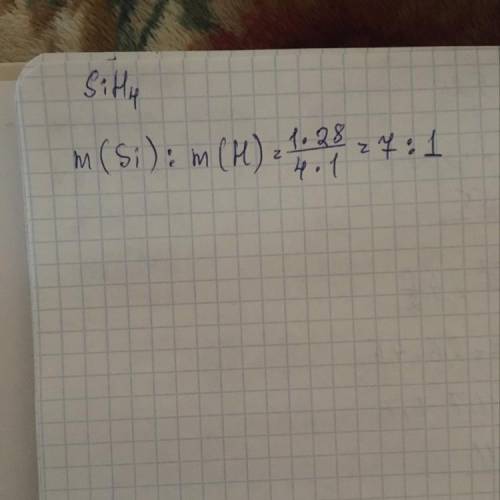 SiH₄
m(Si) : m(H) = \frac{1·28}{4·1} = 7 : 1